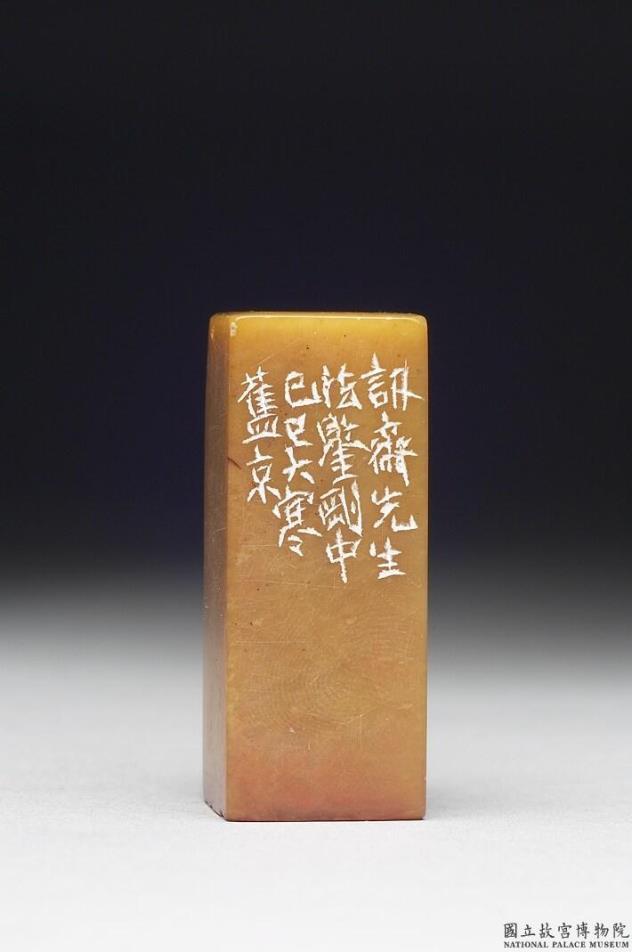 訒齋先生
法鑒剛中
己巳大寒
舊京
國立故宮博物院
NATIONAL PALACE MUSEUM